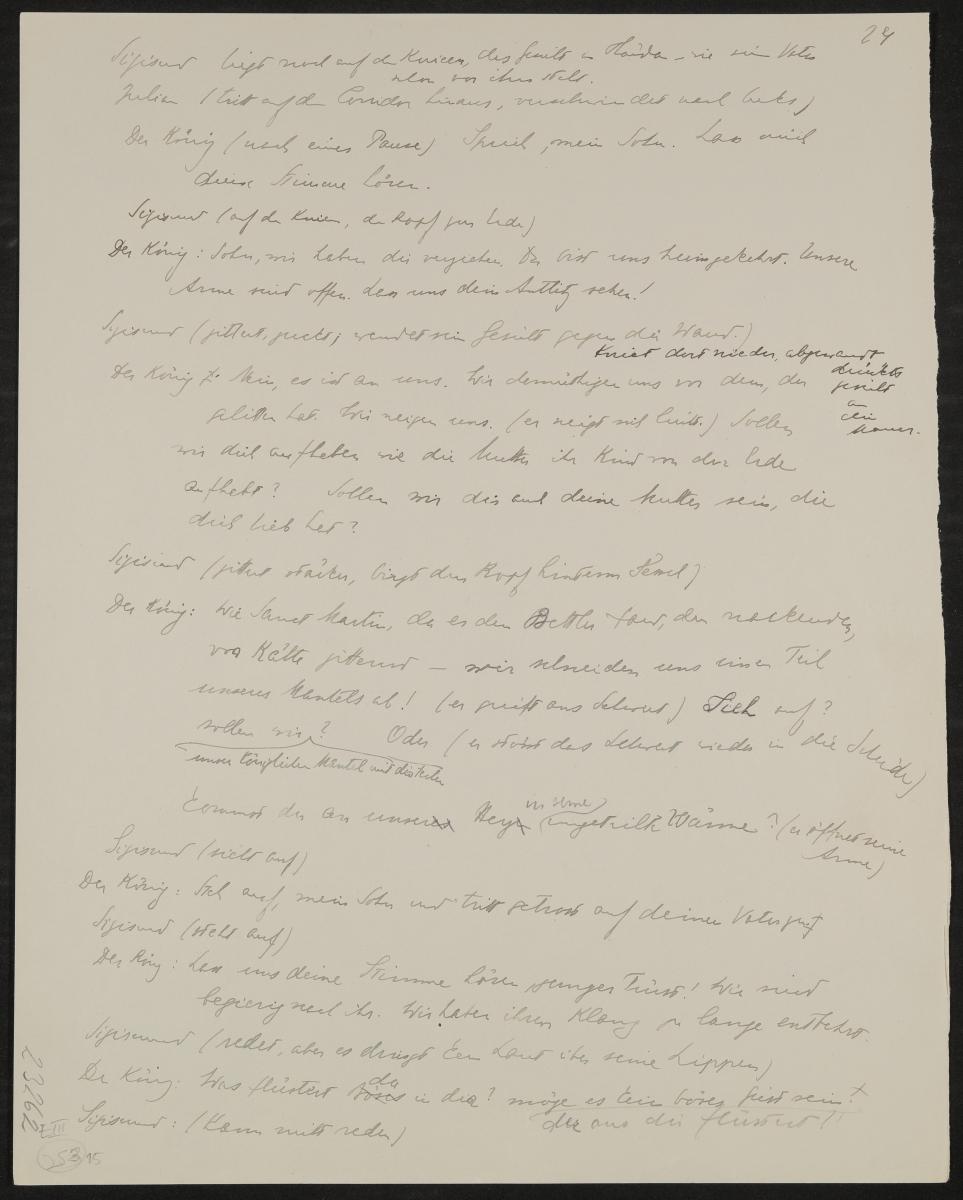 24
Sigismund liegt noch auf den Knieen, das Gesicht in Händen – wie sein Vater
schon vor ihm steht.
Julian (tritt auf den Corridor hinaus, verschwindet nach links)
Der König (nach einer Pause) Sprich, mein Sohn. Lass mich
deine Stimme hören.
Sigismund (auf den Knieen, den Kopf zur Erde)
Der König: Sohn, wir haben dir verziehen. Du bist uns heimgekehrt. Unsere
Arme sind offen. Lass uns dein Antlitz sehen!
Sigismund (zittert, zuckt; wendet sein Gesicht gegen die Wand.)
Kniet dort nieder, abgewandt
drückts
Gesicht
an
die
Mauer.
Der König: Nein, es ist an uns. Wir demüthigen uns vor dem, der
gelitten hat. Wir neigen uns. (er neigt sich leicht.) Sollen
wir dich aufheben wie die Mutter ihr Kind von der Erde
aufhebt? Sollen wir dir auch deine Mutter sein, die
dich lieb hat?
Sigismund (zittert stärker, birgt den Kopf hinterm Sessel)
Der König: Wie Sanct Martin, da er den Bettler fand, den nackenden,
vor Kälte zitternd – wir schneiden uns einen Teil
unseres Mantels ab! (er greift ans Schwert) Sieh auf?
sollen wir? Oder (er stösst das Schwert wieder in die Scheide)
unsern königlichen Mantel mit dir teilen
kommst du an unser Herz in seine ungeteilte Wärme? (er öffnet seine
Arme)
Sigismund (sieht auf)
Der König: Steh auf, mein Sohn und tritt getrost auf deinen Vater zu
Sigismund (steht auf)
Der König: Lass uns deine Stimme hören junger Fürst! Wir sind
begierig nach ihr. Wir haben ihren Klang zu lange entbehrt.
Sigismund (redet, aber es dringt kein Laut über seine Lippen)
Der König: Was flüstert da in dir? möge es kein böser Geist sein!
der aus dir flüstert!
Sigismund: (kann nicht reden)
23262
III
53 15